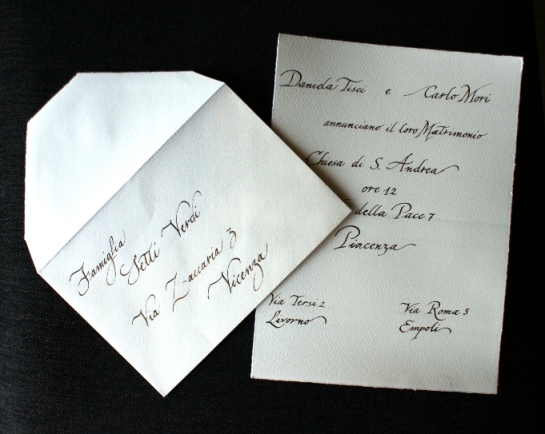 Famiglia
Setti Verdi
Via Zaccaria 3
Vicenza
Daniela Tisci e Carlo Mori
annunciano il loro Matrimonio
Chiesa di S. Andrea
ore 12
della Pace 7
Piacenza
Via Tersi 2
Livorno
Via Roma 3
Empoli